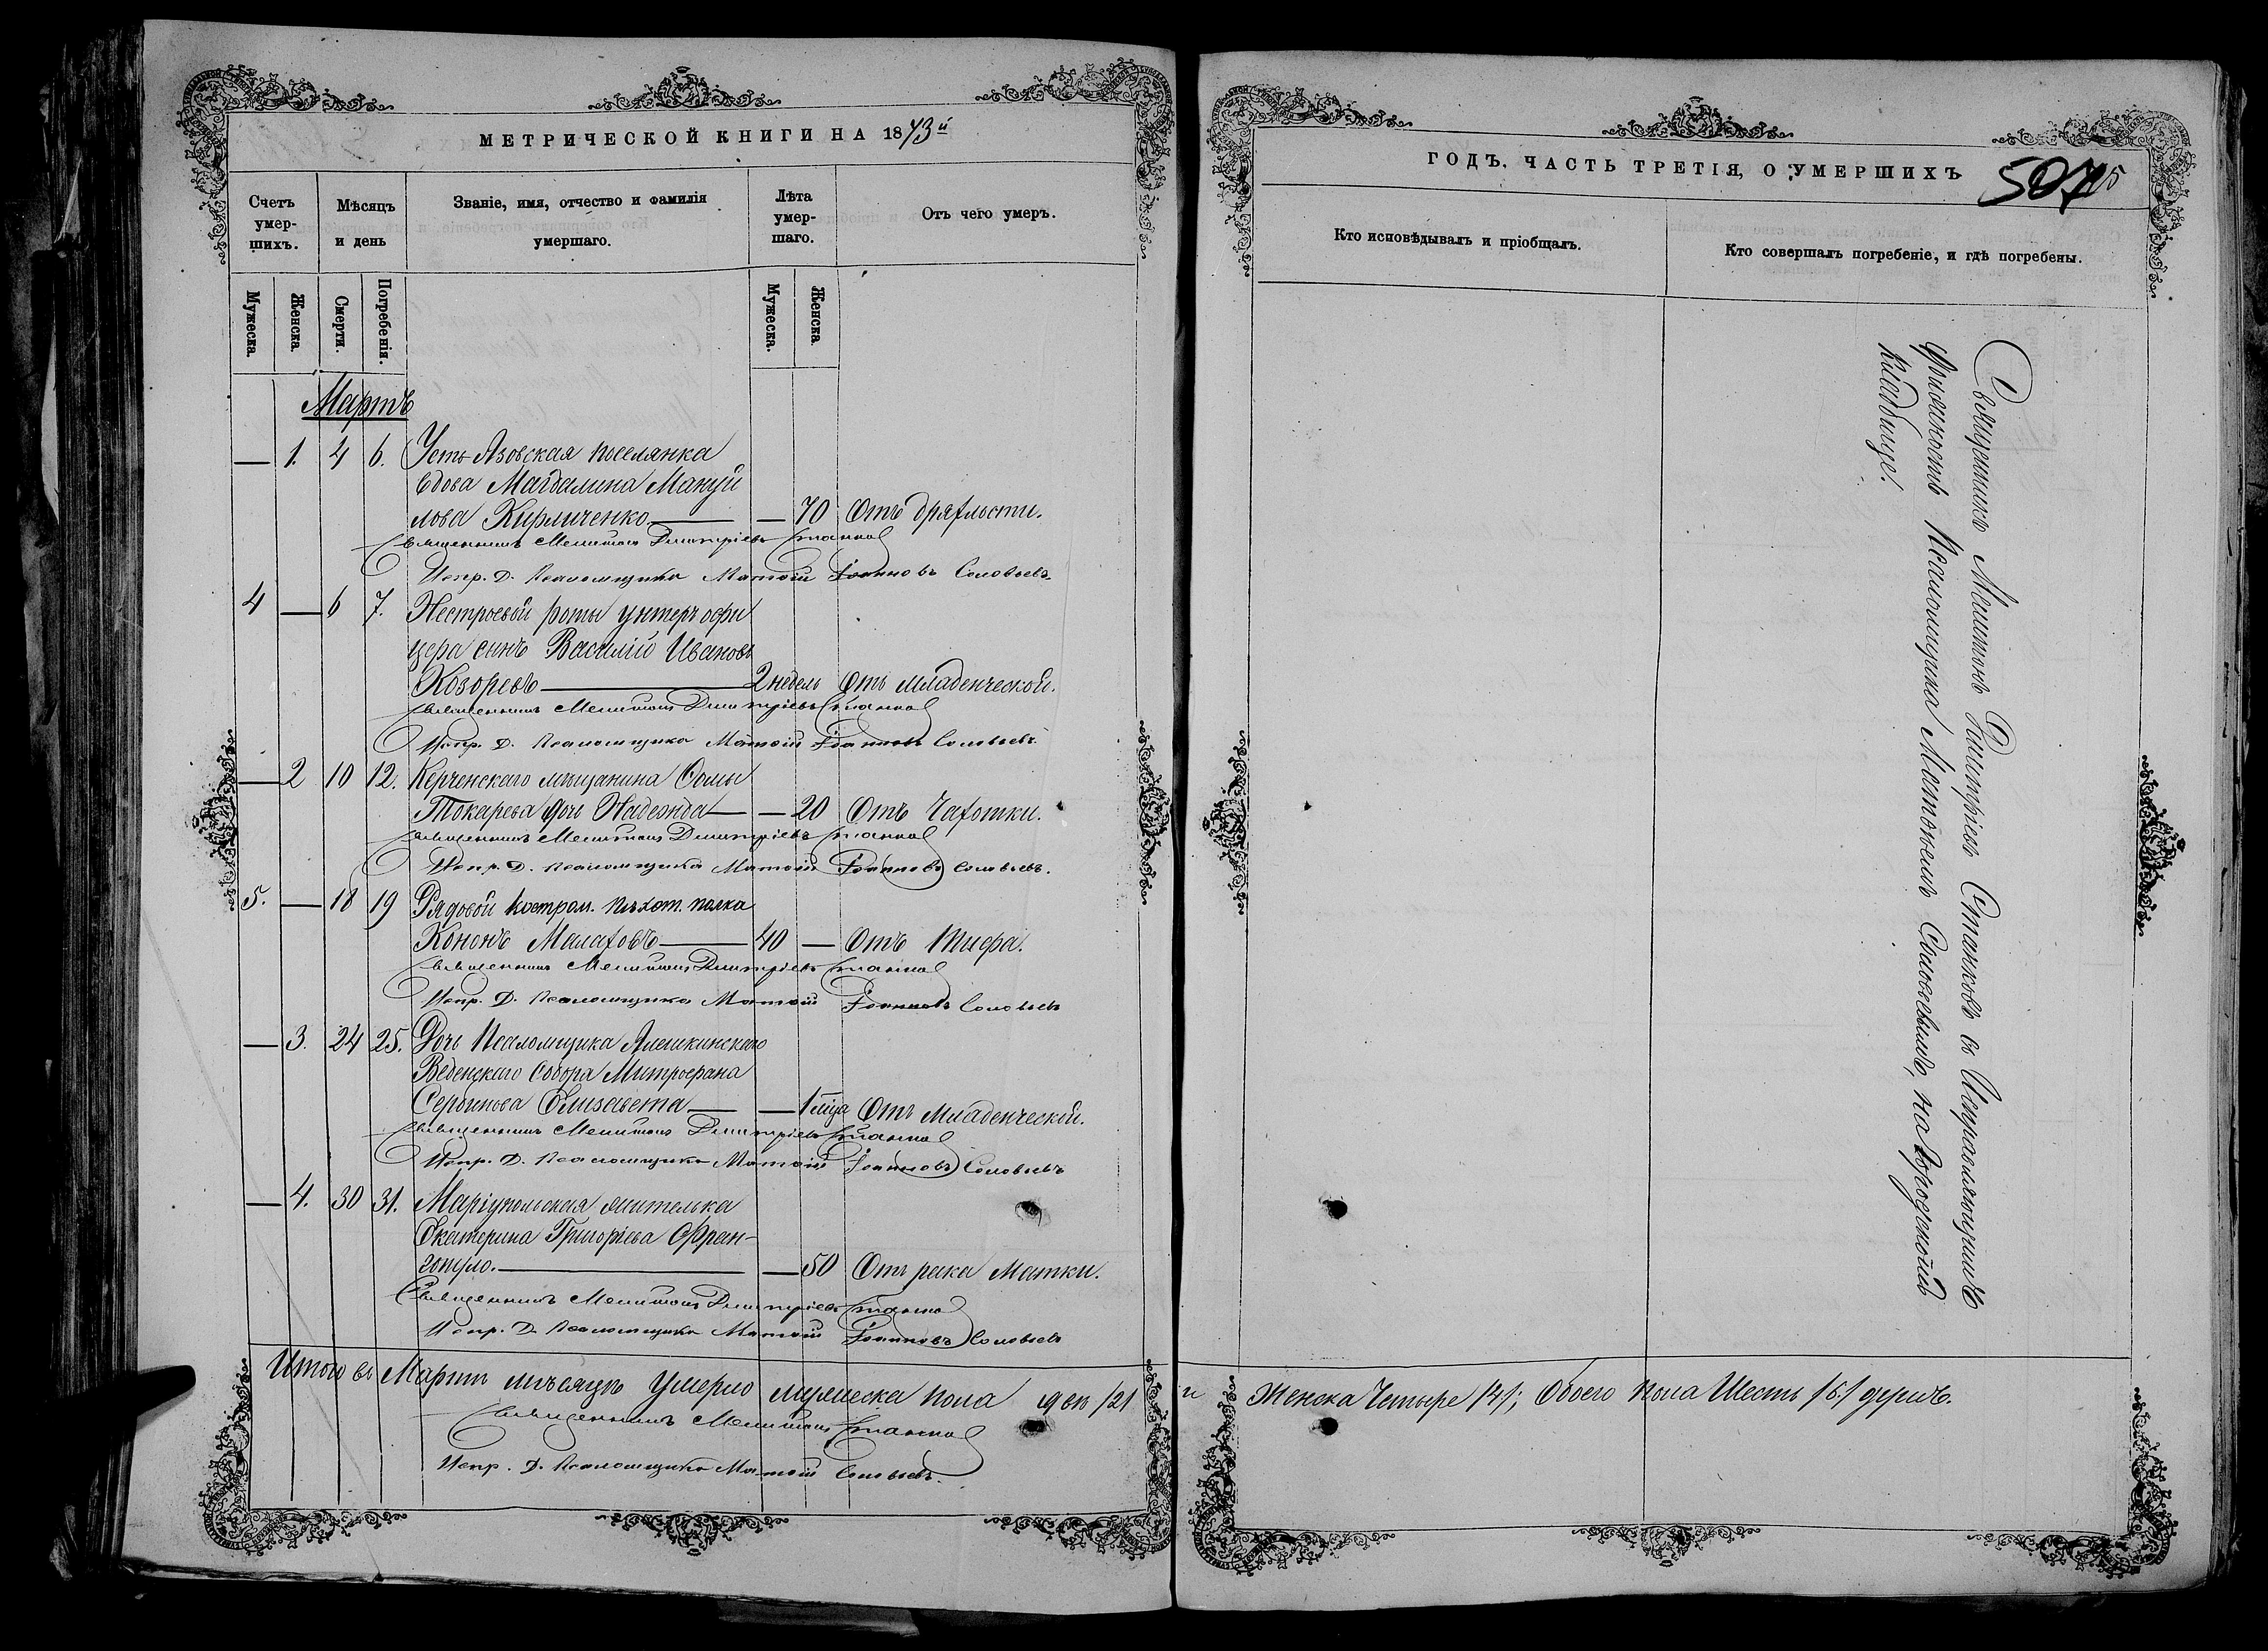 МЕТРИЧЕСКОЙ КНИГИ НА 1873й
Счетъ умер-шихъ.
Мѣсяцъ и день
Званіе, имя, отчество и фамилія умершаго.
Лѣта умер-шаго.
Отъ чего умеръ.
Мужеска.
Женска.
Смерти.
Погребенія.
Мужеска.
Женска.
Мартъ
— 1. 4 6. Усть-Азовская поселянка
вдова Магдалина Мануй
лова Кирличенко — — 70 Отъ дряхлости.
Священникъ Мелитонъ Дмитріевъ Станков
Испр. Д. Псаломщика Матѳій Іоанновъ Соловьевъ
4 — 6 7. Нестроевой роты унтеръ офи
цера сынъ Василій Ивановъ
Козоревъ — 2 недель Отъ младенческой.
Священникъ Мелитонъ Дмитріевъ Станков
Испр. Д. Псаломщика Матѳій Іоанновъ Соловьевъ
— 2 10 12. Керченскаго мѣщанина Ѳомы
Токарева дочь Надежда — — 20 Отъ Чахотки.
Священникъ Мелитонъ Дмитріевъ Станков
Испр. Д. Псаломщика Матѳій Іоанновъ Соловьевъ.
5. — 18 19 Рядовой костром. пѣхот. полка
Кононъ Малаховъ — 40 — Отъ Тифа.
Священникъ Мелитонъ Дмитріевъ Станков
Испр. Д. Псаломщика Матѳій Іоанновъ Соловьевъ
— 3. 24 25. Дочь Псаломщика Алешкинскаго
Веденскаго Собора Митрофана
Сербинова Елисавета — — 1 мца Отъ Младенческой.
Священникъ Мелитонъ Дмитріевъ Станков
Испр. Д. Псаломщика Матѳій Іоанновъ Соловьевъ
— 4. 30 31. Маріупольская жителька
Екатерина Григоріева Фран-
гопуло. — — 50 Отъ рака Матки.
Священникъ Мелитонъ Дмитріевъ Станков
Испр. Д. Псаломщика Матѳій Іоанновъ Соловьевъ
Итого въ Мартѣ мѣсяцѣ умерло мужеска пола два /2/
Священникъ Мелитонъ Станков
Испр. Д. Псаломщика Матѳій Соловьевъ.
ГОДЪ. ЧАСТЬ ТРЕТІЯ, О УМЕРШИХЪ
Кто исповѣдывалъ и пріобщалъ.
Кто совершалъ погребеніе, и гдѣ погребены.
Священникъ Мелитонъ Димитріевъ Станковъ съ Исправляющимъ
должность Псаломщика Матѳіемъ Соловьевымъ, на городской
кладбище.
и Женска Четыре /4/; Обоего пола Шесть /6./ душъ.